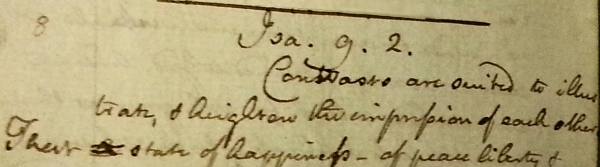 8
Isa. 9. 2.
Contrasts are suited to illus
trate, & heighten the impression of each other
state of happiness - of peace liberty &